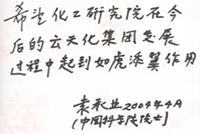 希望化工研究院在今
后的云天化集团发展
过程中起到如虎添翼作用
袁承业2009年4月
(中国科学院院士)